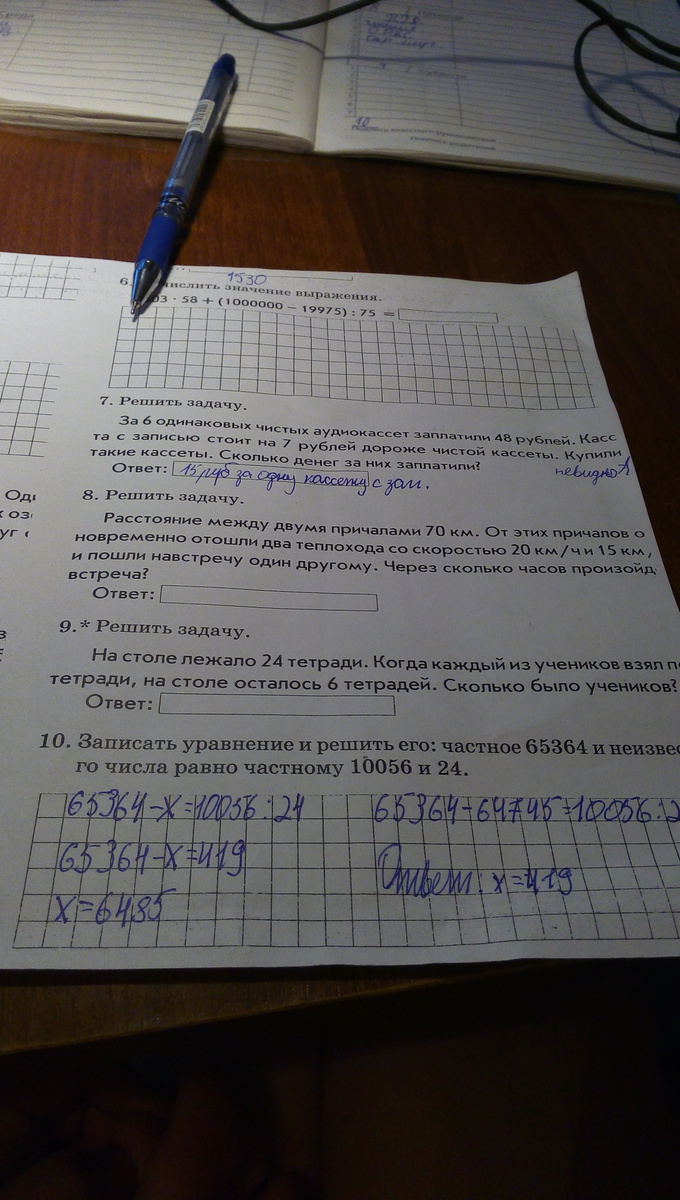 1530
6. числить значение выражения.
03 · 58 + (1000000 − 19975) : 75 =
7. Решить задачу.
За 6 одинаковых чистых аудиокассет заплатили 48 рублей. Касс
та с записью стоит на 7 рублей дороже чистой кассеты. Купили
такие кассеты. Сколько денег за них заплатили?
невидно
Ответ: 15 руб за одну кассету с зап.
8. Решить задачу.
Расстояние между двумя причалами 70 км. От этих причалов о
новременно отошли два теплохода со скоростью 20 км/ч и 15 км,
и пошли навстречу один другому. Через сколько часов произойд
встреча?
Ответ:
9.* Решить задачу.
На столе лежало 24 тетради. Когда каждый из учеников взял п
тетради, на столе осталось 6 тетрадей. Сколько было учеников?
Ответ:
10. Записать уравнение и решить его: частное 65364 и неизвес
го числа равно частному 10056 и 24.
65364-x=10056:24
65364-x=419
x=6485
65364-64745=10056:2
Ответ: x=419